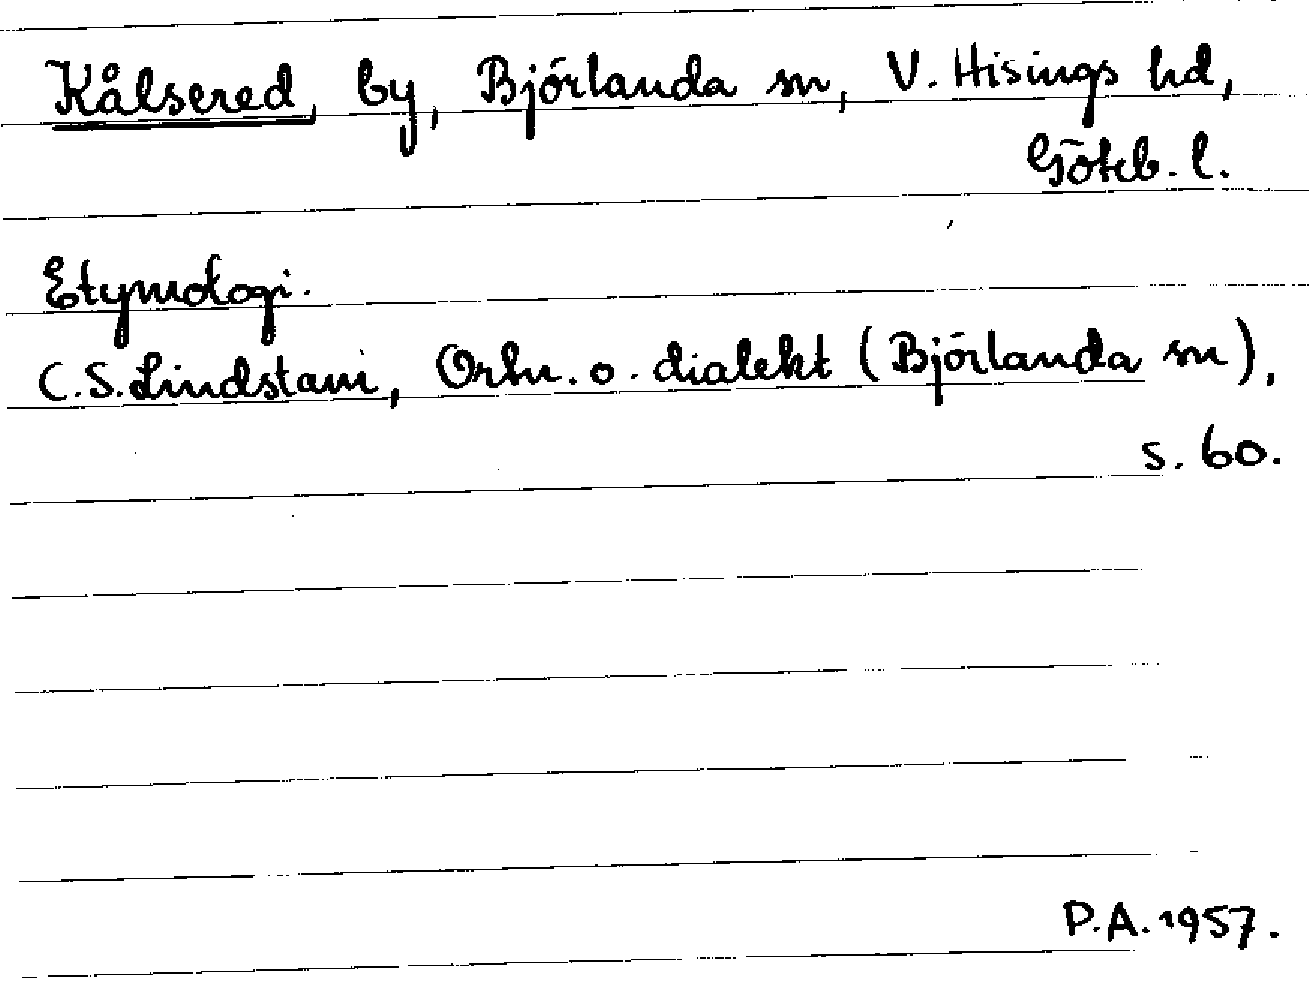 Kålsered, by, Björlanda sn, V. Hisings hd,
Göteb. l.
Etymologi.
C.S. Lindstam, Ortn. o. dialekt (Björlanda sn),
s. 60.
P.A. 1957.